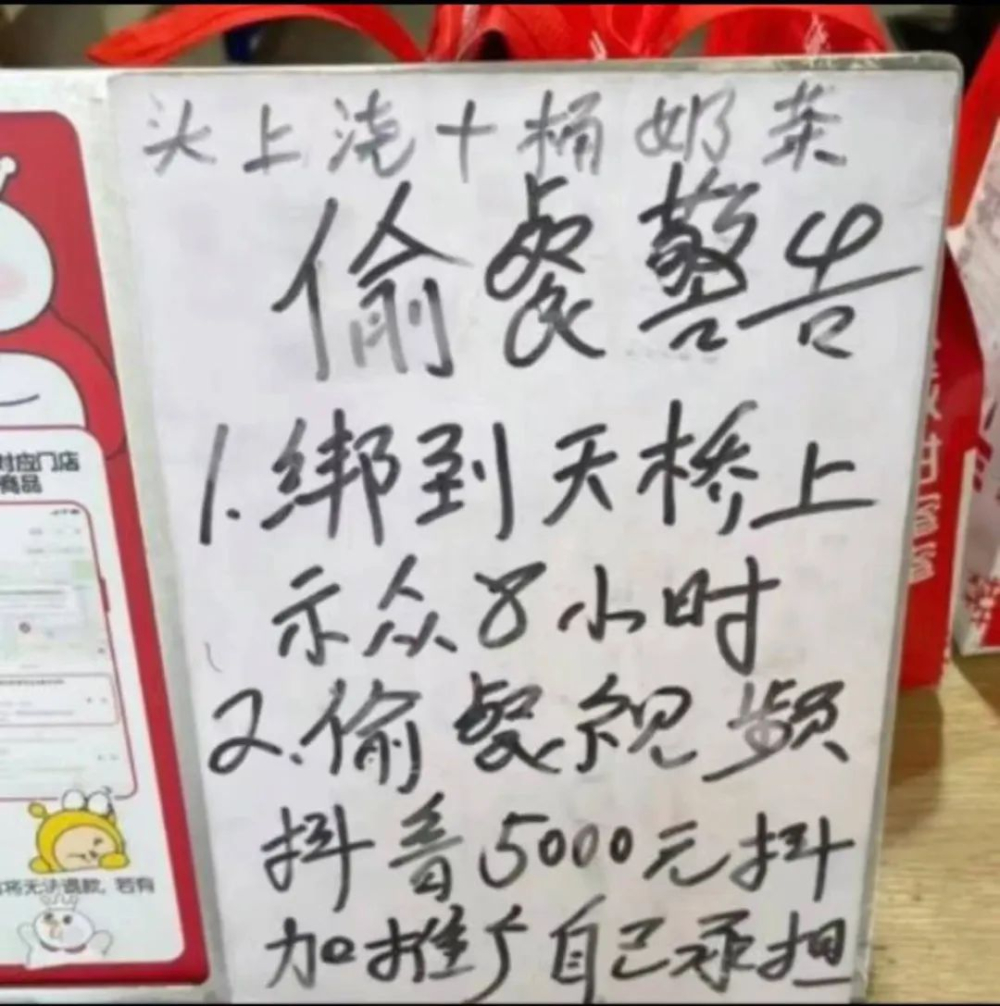 头上浇十桶奶茶
偷餐警告
1.绑到天桥上
示众8小时
2.偷餐视频
抖音5000元抖
加推广自己承担
对应门店
商品
将无法退款,若有